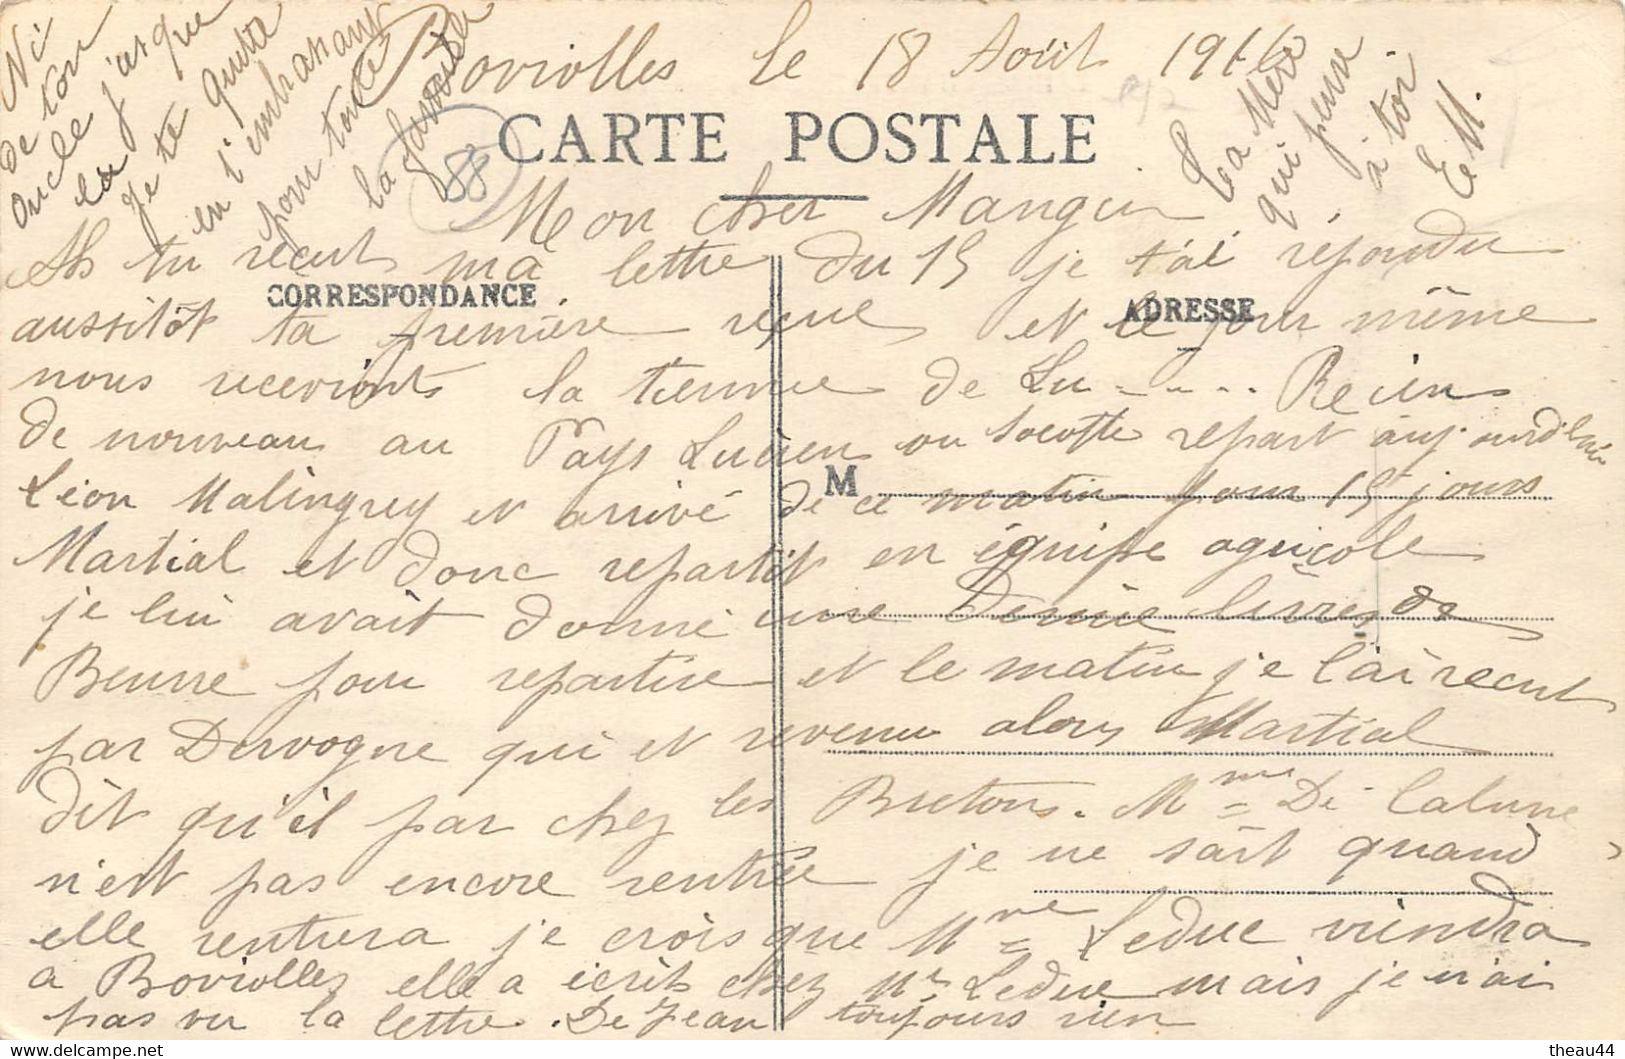 Boviolles le 18 Août 1916
CARTE POSTALE
Mon cher Mangin
As tu recut ma lettre du 15 je t'ai répondu
CORRESPONDANCE
ADRESSE
aussitôt ta première reçue et le jour même
nous recevions la tienne de Lu - - . . Reçius
de nouveau au Pays Lucien repart aujourd'hui
M
Léon Malingrey et arrivé de ce matin pour 15 jours
Martial et donc repartit en équipe agricole
je lui avait donné une Demie livres de
Beurre pour repartire et le matin je l'ai recut
par Dervogne qui et revenu alors Martial
dit qu'il par chez les Bretons. Mme De Lalune
n'est pas encore rentrée je ne sait quand
elle rentrera je crois que Mme Leduc viendra
a Boviolles elle a écrit chez Mr Leduc mais je n'ai
pas vu la lettre. De Jean toujours rien
Ni
de ton
oncle jusque
la
je te quitte
en t'embrassant
pour toute
la famille
88
Ta Mère
qui pense
à toi
E M.
theau44